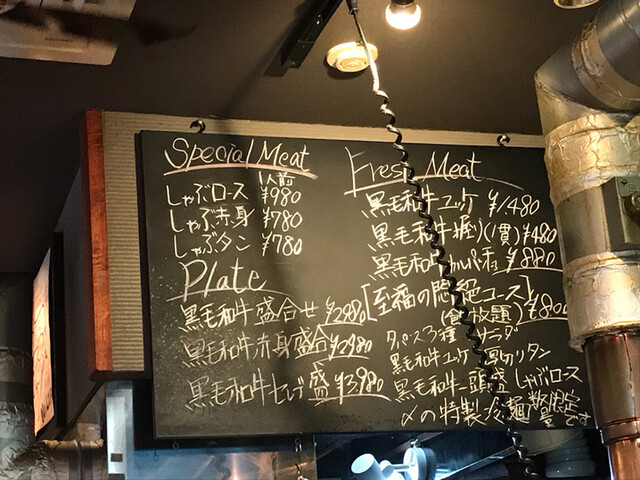 Special Meat
1人前
しゃぶロース ¥980
しゃぶ赤身 ¥780
しゃぶタン ¥780
Plate
黒毛和牛盛合せ ¥2980
黒毛和牛赤身盛合 ¥2980
黒毛和牛 盛 ¥3980
Fresh Meat
黒毛和牛ユッケ ¥1480
黒毛和牛握り(1貫) ¥480
黒毛和牛 ¥880
[至福の悶絶コース]
(食べ放題)
3種 サラダ
黒毛和牛ユッケ 厚切りタン
黒毛和牛一頭盛 しゃぶロース
〆の特製冷麺 数量限定です